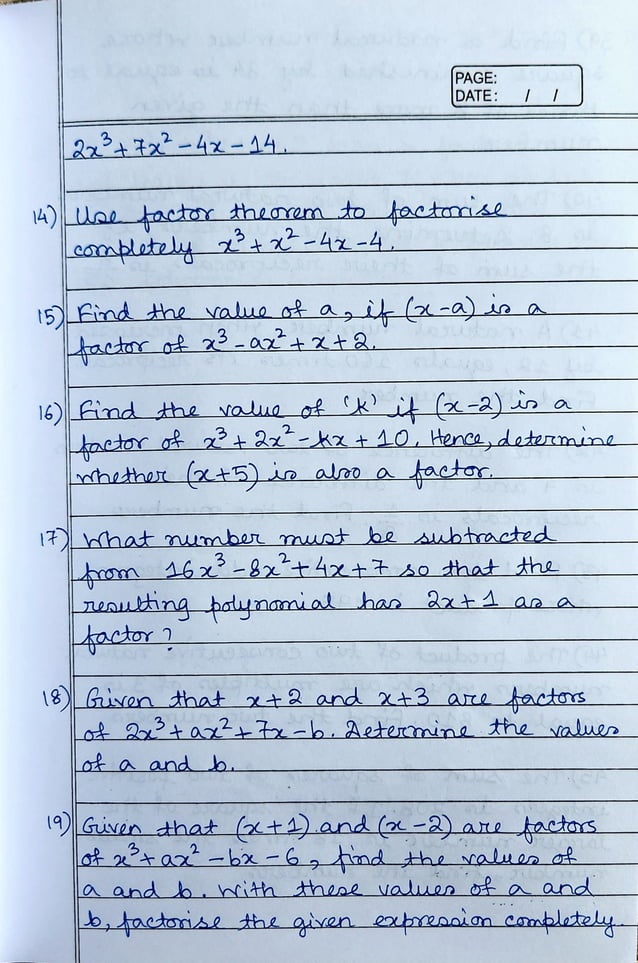 PAGE:
DATE: / /
2x³ + 7x² – 4x – 14.
14) Use factor theorem to factorise
completely x³ + x² – 4x – 4.
15) Find the value of a, if (x – a) is a
factor of x³ – ax² + x + 2.
16) Find the value of 'k' if (x – 2) is a
factor of x³ + 2x² – kx + 10. Hence, determine
whether (x + 5) is also a factor.
17) What number must be subtracted
from 16x³ – 8x² + 4x + 7 so that the
resulting polynomial has 2x + 1 as a
factor?
18) Given that x + 2 and x + 3 are factors
of 2x³ + ax² + 7x – b. Determine the values
of a and b.
19) Given that (x + 1) and (x – 2) are factors
of x³ + ax² – bx – 6, find the values of
a and b. With these values of a and
b, factorise the given expression completely.